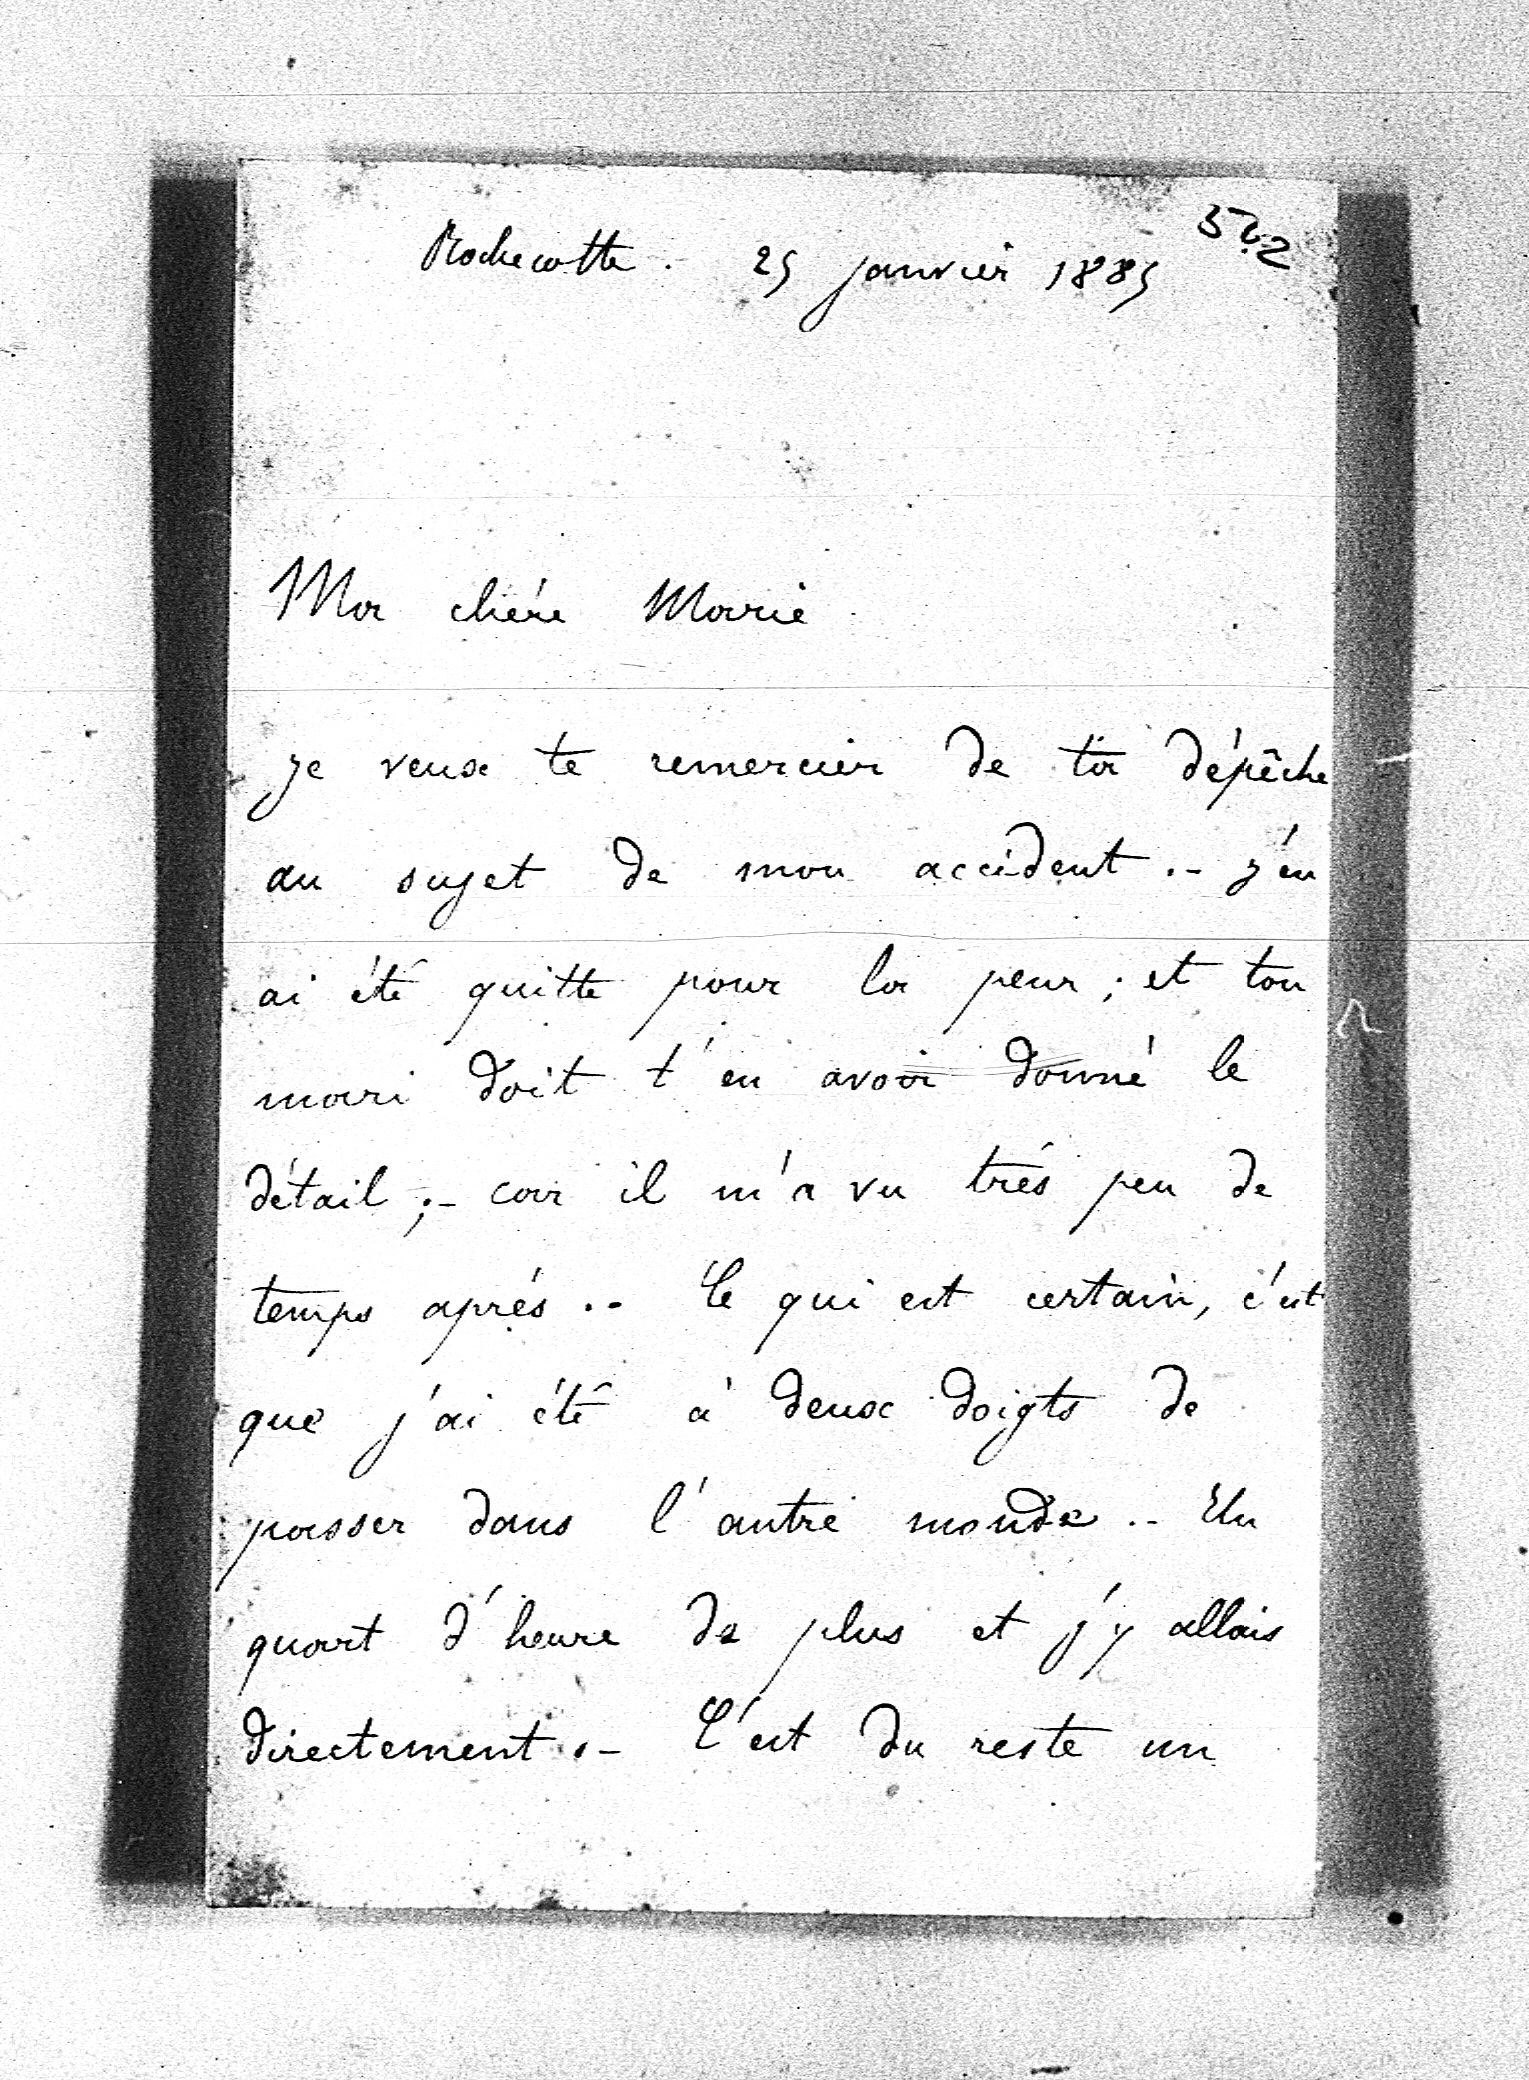 Rochecotte. 25 janvier 1885
Ma chère Marie
je veux te remercier de ta dépêche
au sujet de mon accident.- j'en
ai été quitte pour la peur ; et ton
mari doit t'en avoir donné le
détail ;- car il m'a vu très peu de
temps après.- Ce qui est certain, c'est
que j'ai été à deux doigts de
passer dans l'autre monde.- Un
quart d'heure de plus et j'y allais
directement.- C'est du reste un